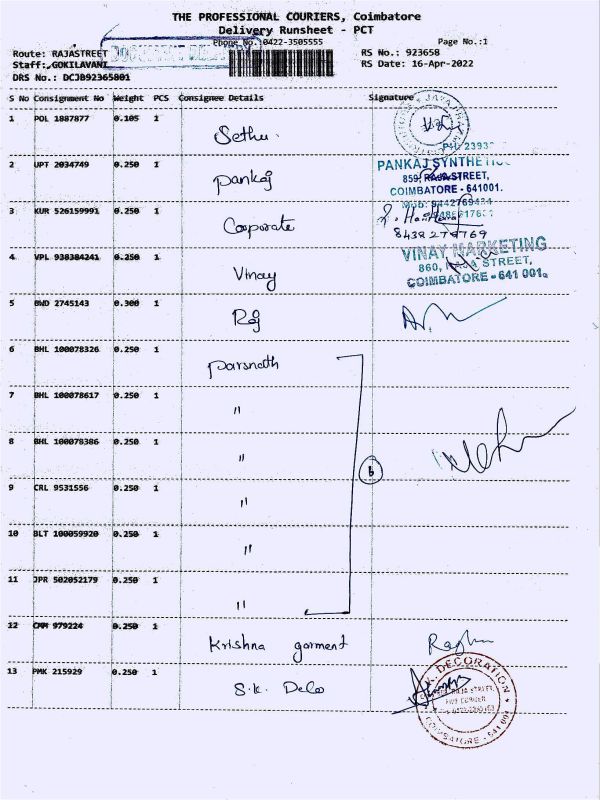 THE PROFESSIONAL COURIERS, Coimbatore
Delivery Runsheet - PCT
Phone No.:0422-3505555
Page No.:1
Route: RAJASTREET
RS No.: 923658
Staff: GOKILAVANI
RS Date: 16-Apr-2022
DRS No.: DCJB92365801
S No Consignment No Weight PCS Consignee Details Signature
1 POL 1887877 0.105 1
Sethu.
2 UPT 2034749 0.250 1
Pankaj
PANKAJ SYNTHETIC
859, RAJA STREET,
COIMBATORE - 641001.
3 KUR 526159991 0.250 1
Corporate
8438279769
4 VPL 938384241 0.250 1
Vinay
VINAY MARKETING
860, RAJA STREET,
COIMBATORE - 641 001.
5 BWD 2745143 0.300 1
Raj
6 BHL 100078326 0.250 1
Parsnath
7 BHL 100078617 0.250 1
"
8 BHL 100078386 0.250 1
"
6
9 CRL 9531556 0.250 1
"
10 BLT 100059920 0.250 1
"
11 JPR 502052179 0.250 1
"
12 CMM 979224 0.250 1
Krishna garment
Raghu
13 PMK 215929 0.250 1
S.K. Deco
S.K. DECORATION
RAJA STREET,
COIMBATORE - 641 001